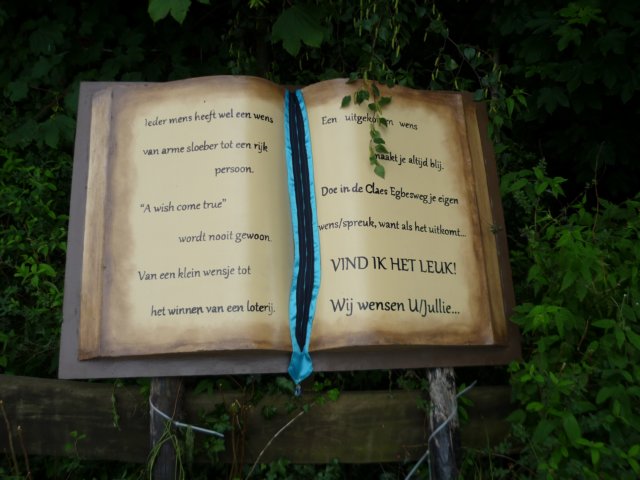 Ieder mens heeft wel een wens
van arme sloeber tot een rijk
persoon.
"A wish come true"
wordt nooit gewoon.
Van een klein wensje tot
het winnen van een loterij.
Een wens
maakt je altijd blij.
Doe in de Claes Egbesweg je eigen
wens/spreuk, want als het uitkomt...
VIND IK HET LEUK!
Wij wensen U/Jullie...